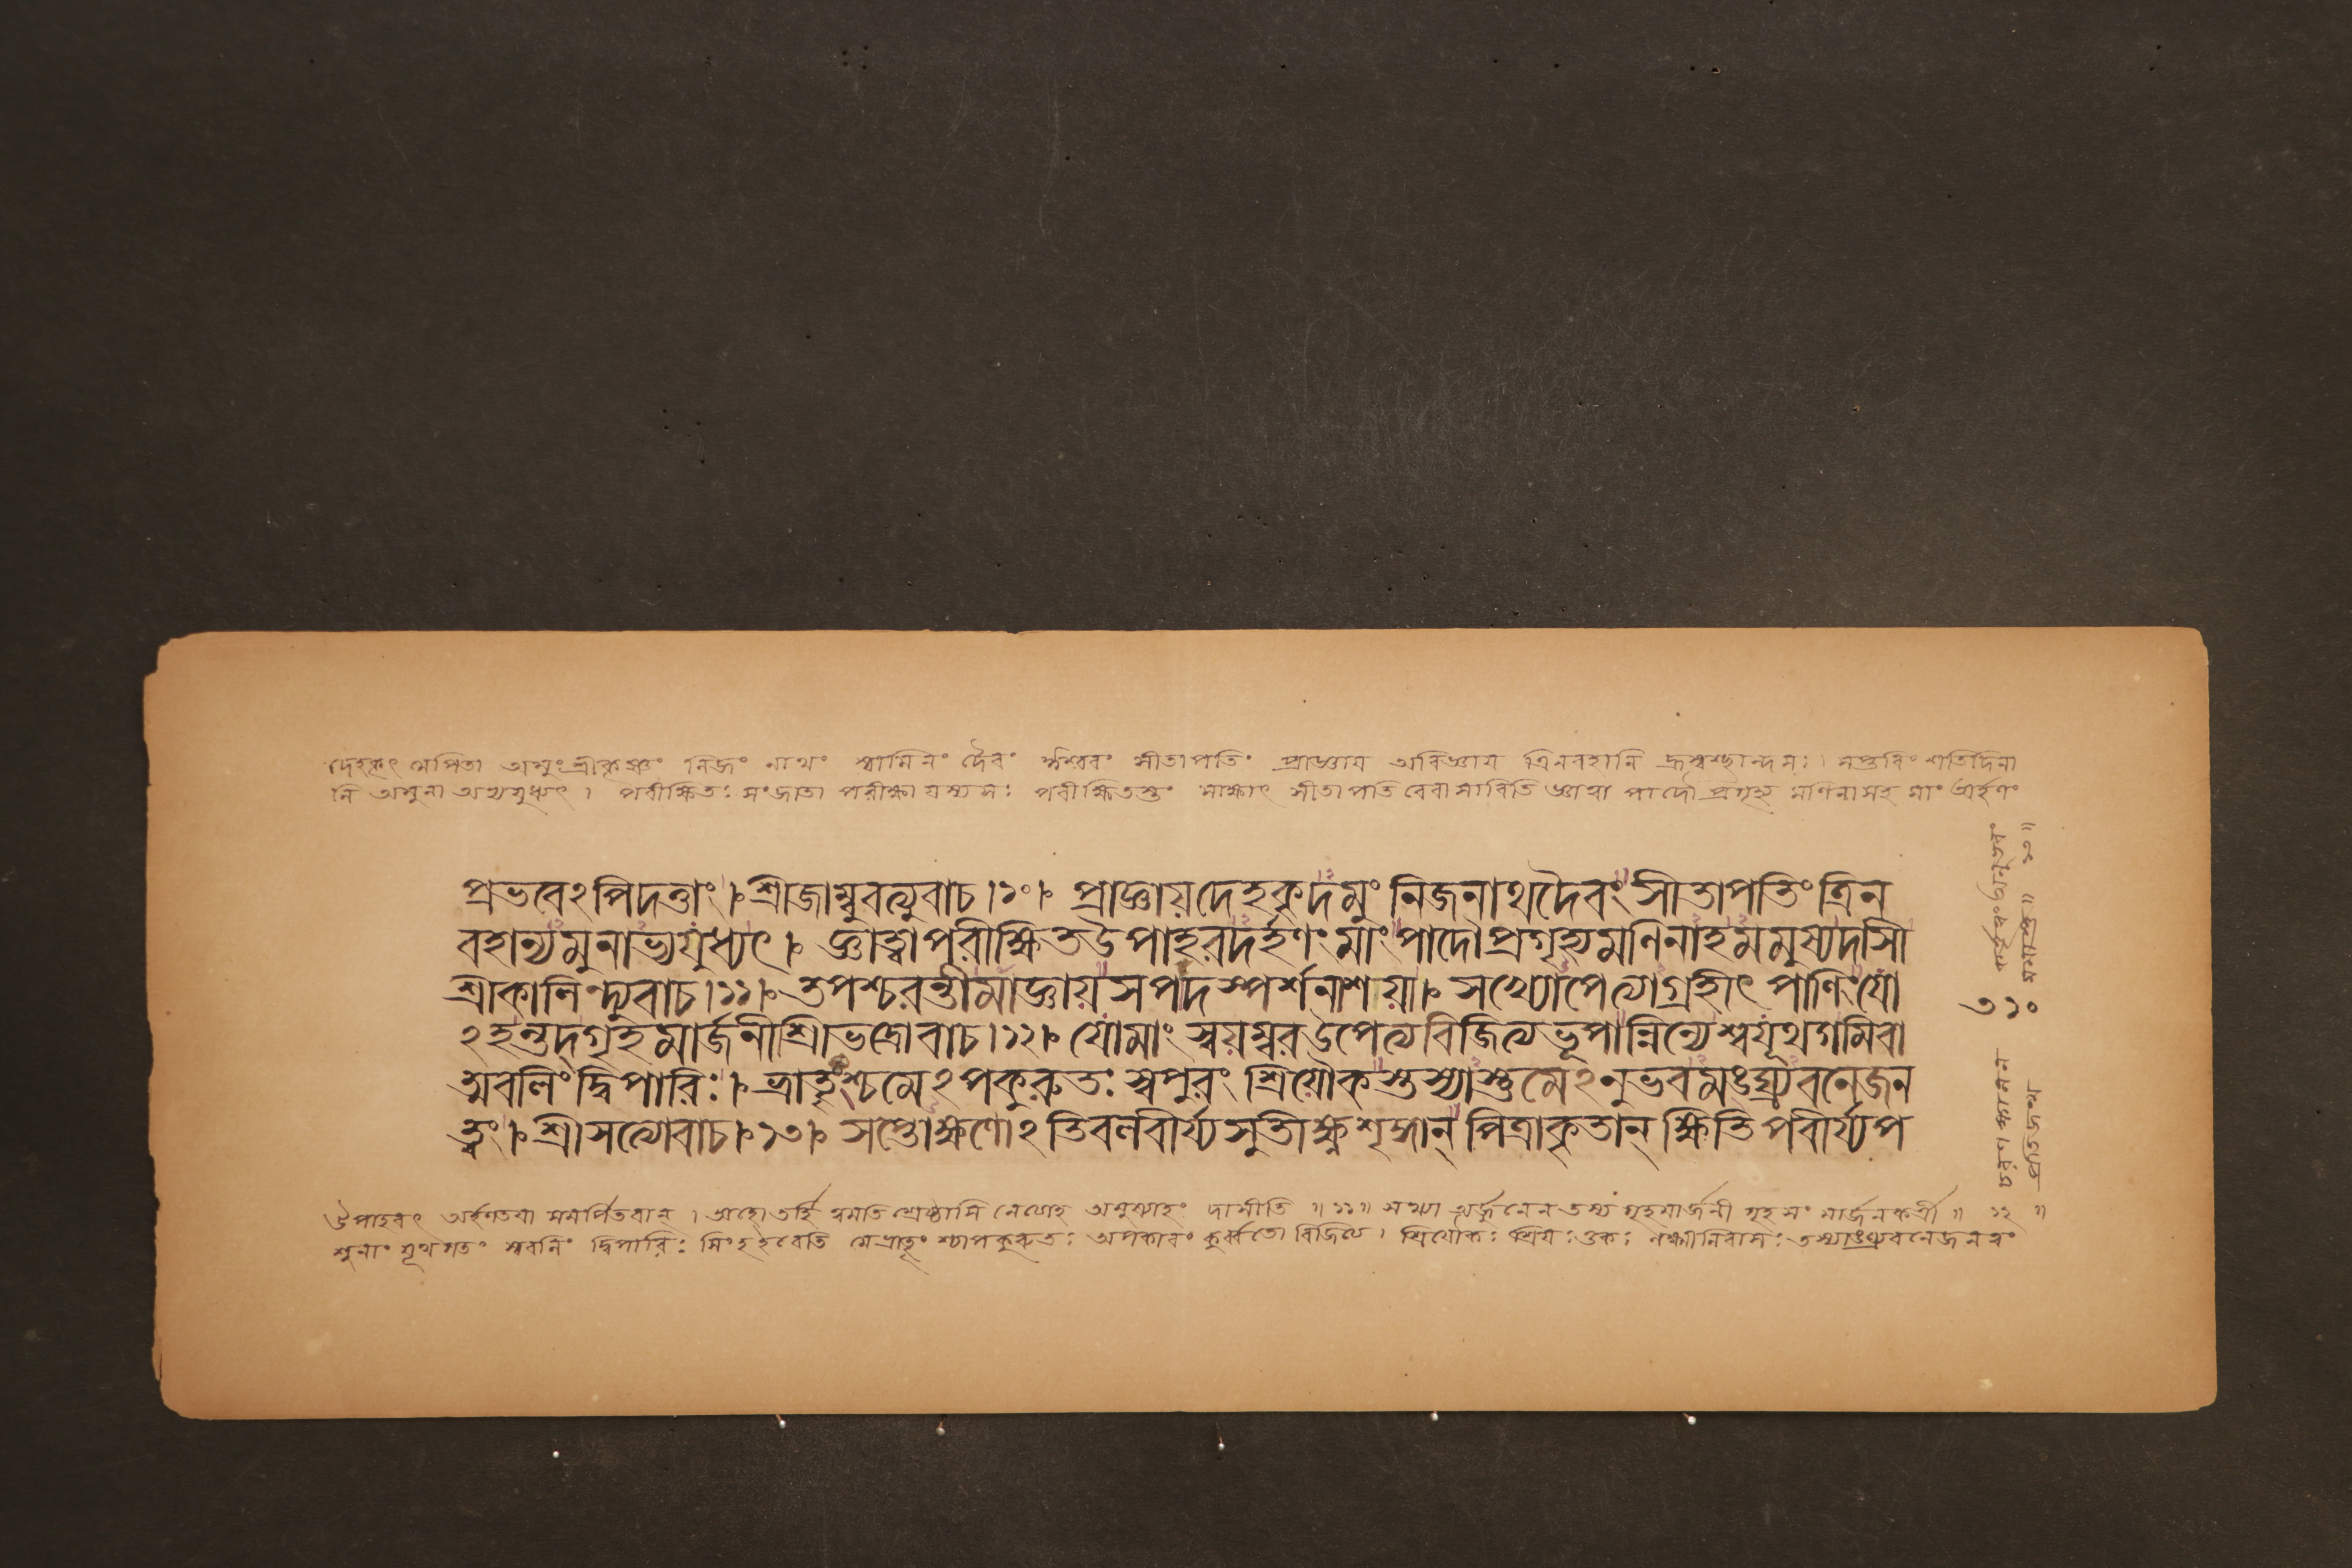 দেহকৃৎ মেপিতা অমুং শ্রীকৃষ্ণং নিজং নাথং স্বামিনং দৈবং ঈশ্বরং সীতাপতিং প্রাজ্ঞায় অবিজ্ঞায় ত্রিনবহানি সপ্তবিংশতিদিনা
নি অমুনা অভ্যযুধ্যৎ । পরীক্ষিতঃ সংজাতা পরীক্ষা যস্য সঃ পরীক্ষিতস্তং সাক্ষাৎ সীতাপতি রেবাসাবিতি জ্ঞাত্বা পাদৌ প্রগৃহ্য মণিনাসহ মাং অর্হণং
প্রভবেঽপিদত্তাং । শ্রীজাম্বুবত্যুবাচ ।১০। প্রাজ্ঞায়দেহকৃদমুং নিজনাথদৈবং সীতাপতিং ত্রিন
বহান্যমুনাভ্যযুধ্যৎ । জ্ঞাত্বাপরীক্ষিতউপাহরদর্হণং মাং পাদৌপ্রগৃহ্যমণিনাহমমুষ্যদাসী
শ্রীকালিন্দ্যুবাচ ।১১। তপশ্চরন্তীমাজ্ঞায়সপদস্পর্শনাশয়া । সখ্যোপেত্যাগ্রহীৎ পাণিং যো
ঽহন্তদ্গৃহমার্জনীশ্রীভদ্রোবাচ ।১২। যোমাং স্বয়ম্বরউপেত্যবিজিত্যভূপান্নিন্যেশ্বযূথগমিবা
ত্মবলিং দ্বিপারিঃ । ভ্রাতৄংশ্চমেঽপকুরুতঃ স্বপুরং শ্রিয়ৌকস্তস্যাস্তুমেঽনুভবমঙ্ঘ্র্যবনেজন
ত্বং । শ্রীসত্যোবাচ ।১৩। সপ্তোক্ষণোঽতিবলবীর্য্যসুতীক্ষ্ণশৃঙ্গান্ পিত্রাকৃতান্ ক্ষিতিপবীর্য্যপ
উপাহরৎ অর্হণতয়া সমর্পিতবান্ । তর্হি অমুষ্যাহং দাসীতি ॥ ১১ ॥ সখ্যা অর্জুনেন তস্য গৃহমার্জনী গৃহসংমার্জনকর্ত্রী ॥ ১২ ॥
শুনাং যূথগতং স্ববলিং দ্বিপারিঃ সিংহইবেতি মেভ্রাতৄংশ্চাপকুরুতঃ অপকারং কুর্ব্বতো বিজিত্য । শ্রিয়ৌকঃ শ্রিয়ঃ ওকঃ লক্ষ্মীনিবাসঃ তস্যাঙ্ঘ্র্যবনেজনত্বং
৩১০